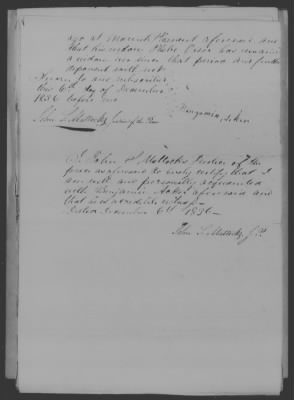 ago at Mount Pleasant aforesaid and
that his widow Phebe has remained
a widow ever since that period and further
deponent saith not
Sworn to and subscribed
this 6th day of December
1836 before me
Benjamin Acker
John S. Mattocks Justice of the Peace
I John S Mattocks Justice of the
peace aforesaid do hereby certify that I
am well and personally acquainted
with Benjamin Acker aforesaid and
that is a credible witness
Dated December 6th 1836
John S. Mattocks J.P.